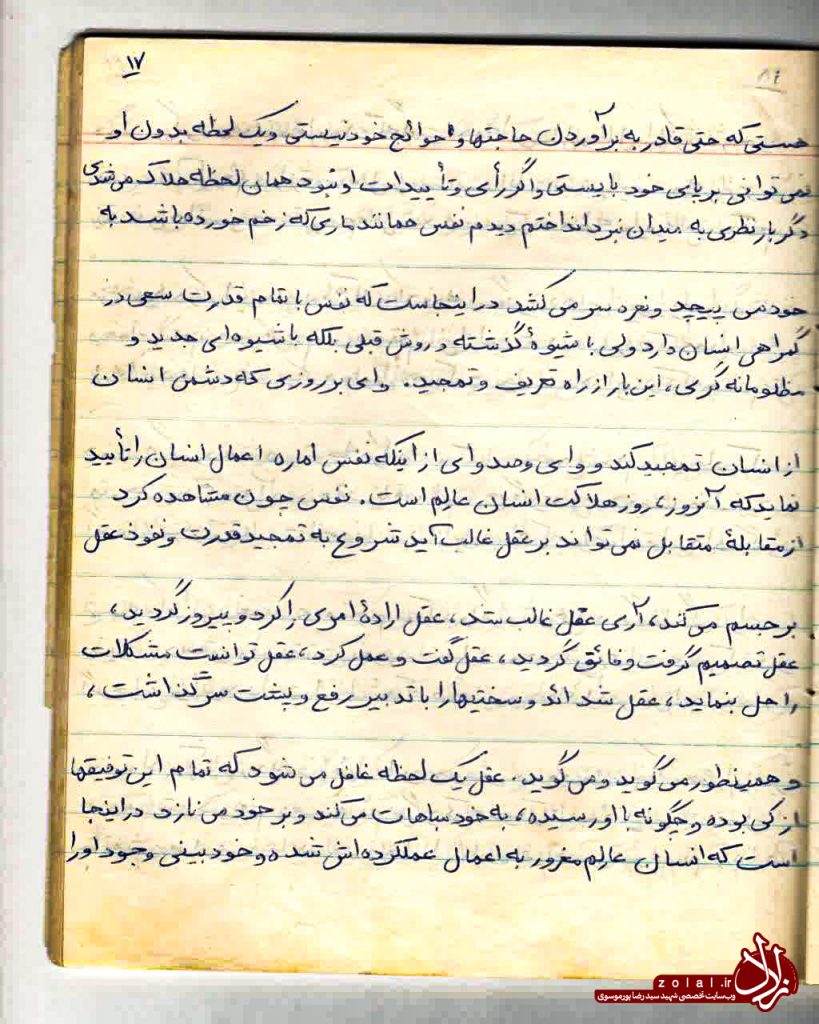 ۱۷
هستی که حتی قادر به برآوردن حاجتها و حوائج خود نیستی و یک لحظه بدون او
نمی توانی بر پای خود بایستی و اگر رأی و تأییدات او نبود همان لحظه هلاک می شدی
دگر بار نظری به میدان نبرد انداختم دیدم نفس همانند ماری که زخم خورده باشد به
خود می پیچد و نعره سر می کشد در اینجاست که نفس با تمام قدرت سعی در
گمراهی انسان دارد ولی با شیوهٔ گذشته و روش قبلی بلکه با شیوه ای جدید و
مظلومانه گری، این بار از راه تعریف و تمجید. وای بر روزی که دشمن انسان
از انسان تمجید کند و وای و صد وای از اینکه نفس اماره اعمال انسان را تأیید
نماید که آنروز، روز هلاکت انسان عالِم است. نفس چون مشاهده کرد
از مقابلهٔ متقابل نمی تواند بر عقل غالب آید شروع به تمجید قدرت و نفوذ عقل
بر جسم می کند، آری عقل غالب شد، عقل ارادهٔ امری را کرد و پیروز گردید،
عقل تصمیم گرفت و فائق گردید، عقل گفت و عمل کرد، عقل توانست مشکلات
را حل بنماید، عقل شدائد و سختیها را با تدبیر رفع و پشت سر گذاشت،
و همینطور می گوید و می گوید. عقل یک لحظه غافل می شود که تمام این توفیقها
از کی بوده و چگونه با او رسیده، به خود مباهات می کند و بر خود می نازد در اینجا
است که انسان عالِم مغرور به اعمال عملکرده اش شده و خود بینی وجود او را
زلال
zolal.ir
وب‌سایت تخصصی شهید سید رضا پورموسوی